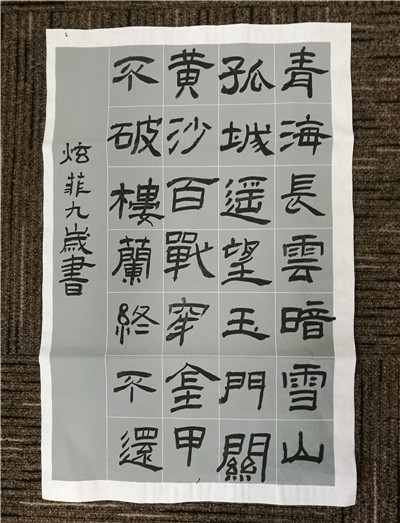 青海長雲暗雪山
孤城遥望玉門關
黄沙百戰穿金甲
不破樓蘭終不還
炫菲九歲書